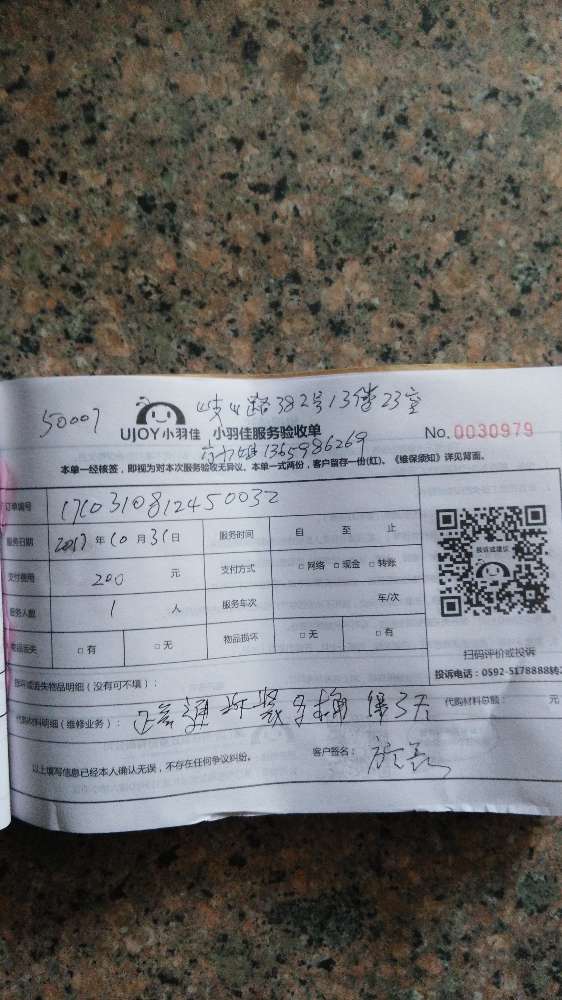 50007 岐山路382号13楼23室
UJOY小羽佳 小羽佳服务验收单 No.0030979
13659986269
本单一经核签，即视为对本次服务验收无异议。本单一式两份，客户留存一份(红)。《维保须知》详见背面。
订单编号 17103108124500032
服务日期 2017年10月31日 服务时间 自 至 止
支付费用 200 元 支付方式 □网络 □现金 □转账
服务人数 1 人 服务车次 车/次
物品丢失 □有 □无 物品损坏 □无 □有
投诉或建议
扫码评价或投诉
投诉电话：0592-5178888转2
损坏或丢失物品明细（没有可不填）：
代购材料明细（维修业务）： 代购材料总额： 元
以上填写信息已经本人确认无误，不存在任何争议纠纷。 客户签名：